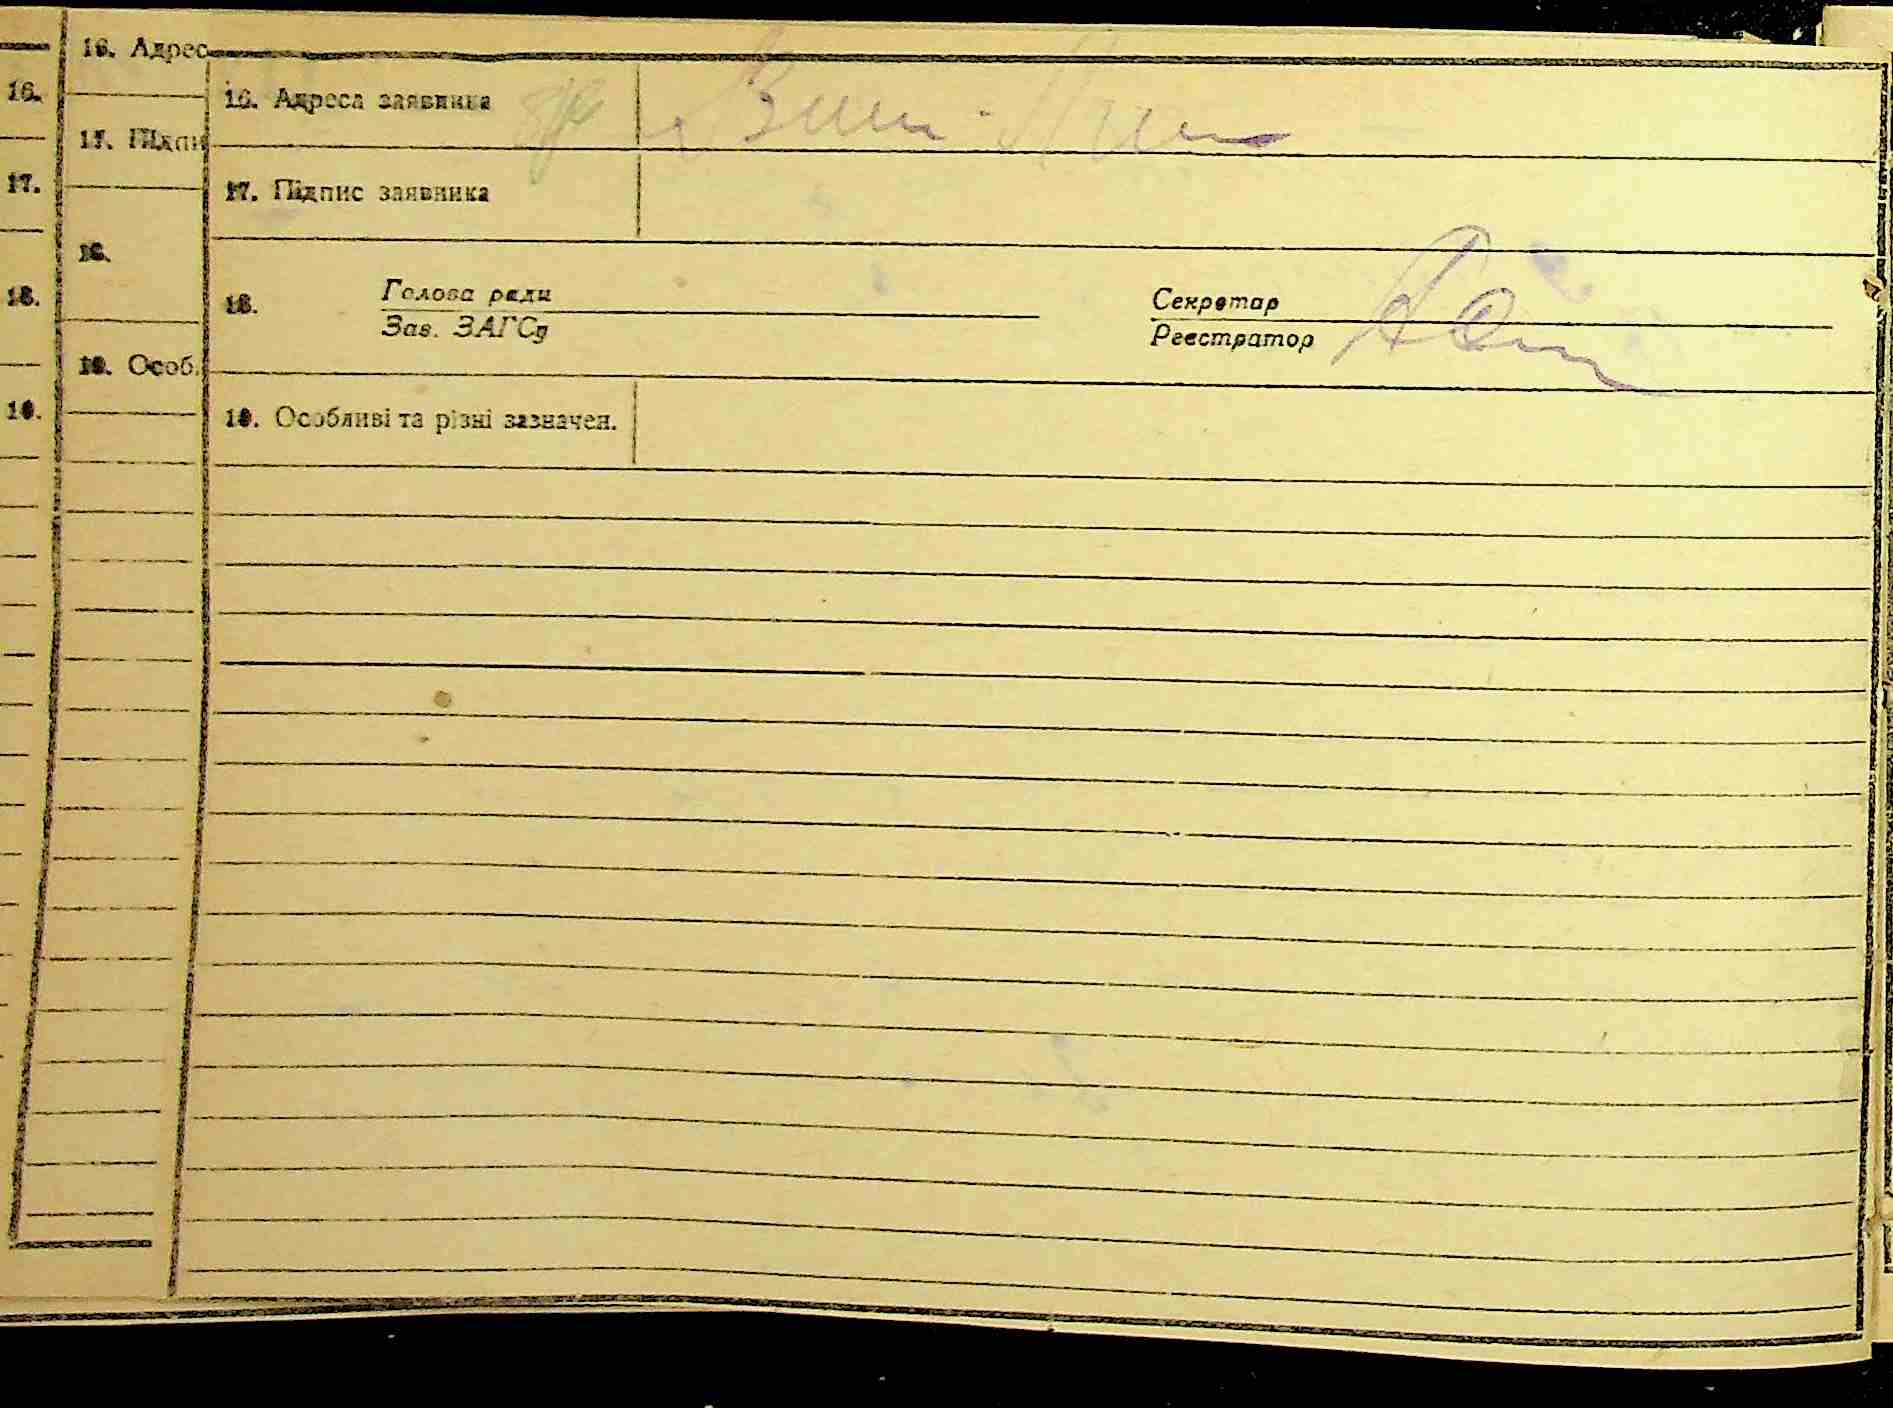 16. Адрес
16.
17. Підпи
17.
18.
18.
19. Особ.
19.
16. Адреса заявника
17. Підпис заявника
18. Голова ради Секретар
Зав. ЗАГСу Реєстратор
19. Особливі та різні зазначен.